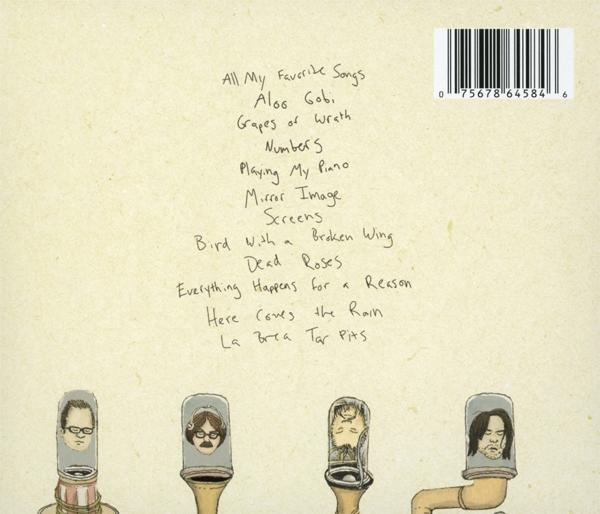 All My Favorite Songs
Aloo Gobi
Grapes of Wrath
Numbers
Playing My Piano
Mirror Image
Screens
Bird With a Broken Wing
Dead Roses
Everything Happens for a Reason
Here Comes the Rain
La Brea Tar Pits
0 75678 64584 6